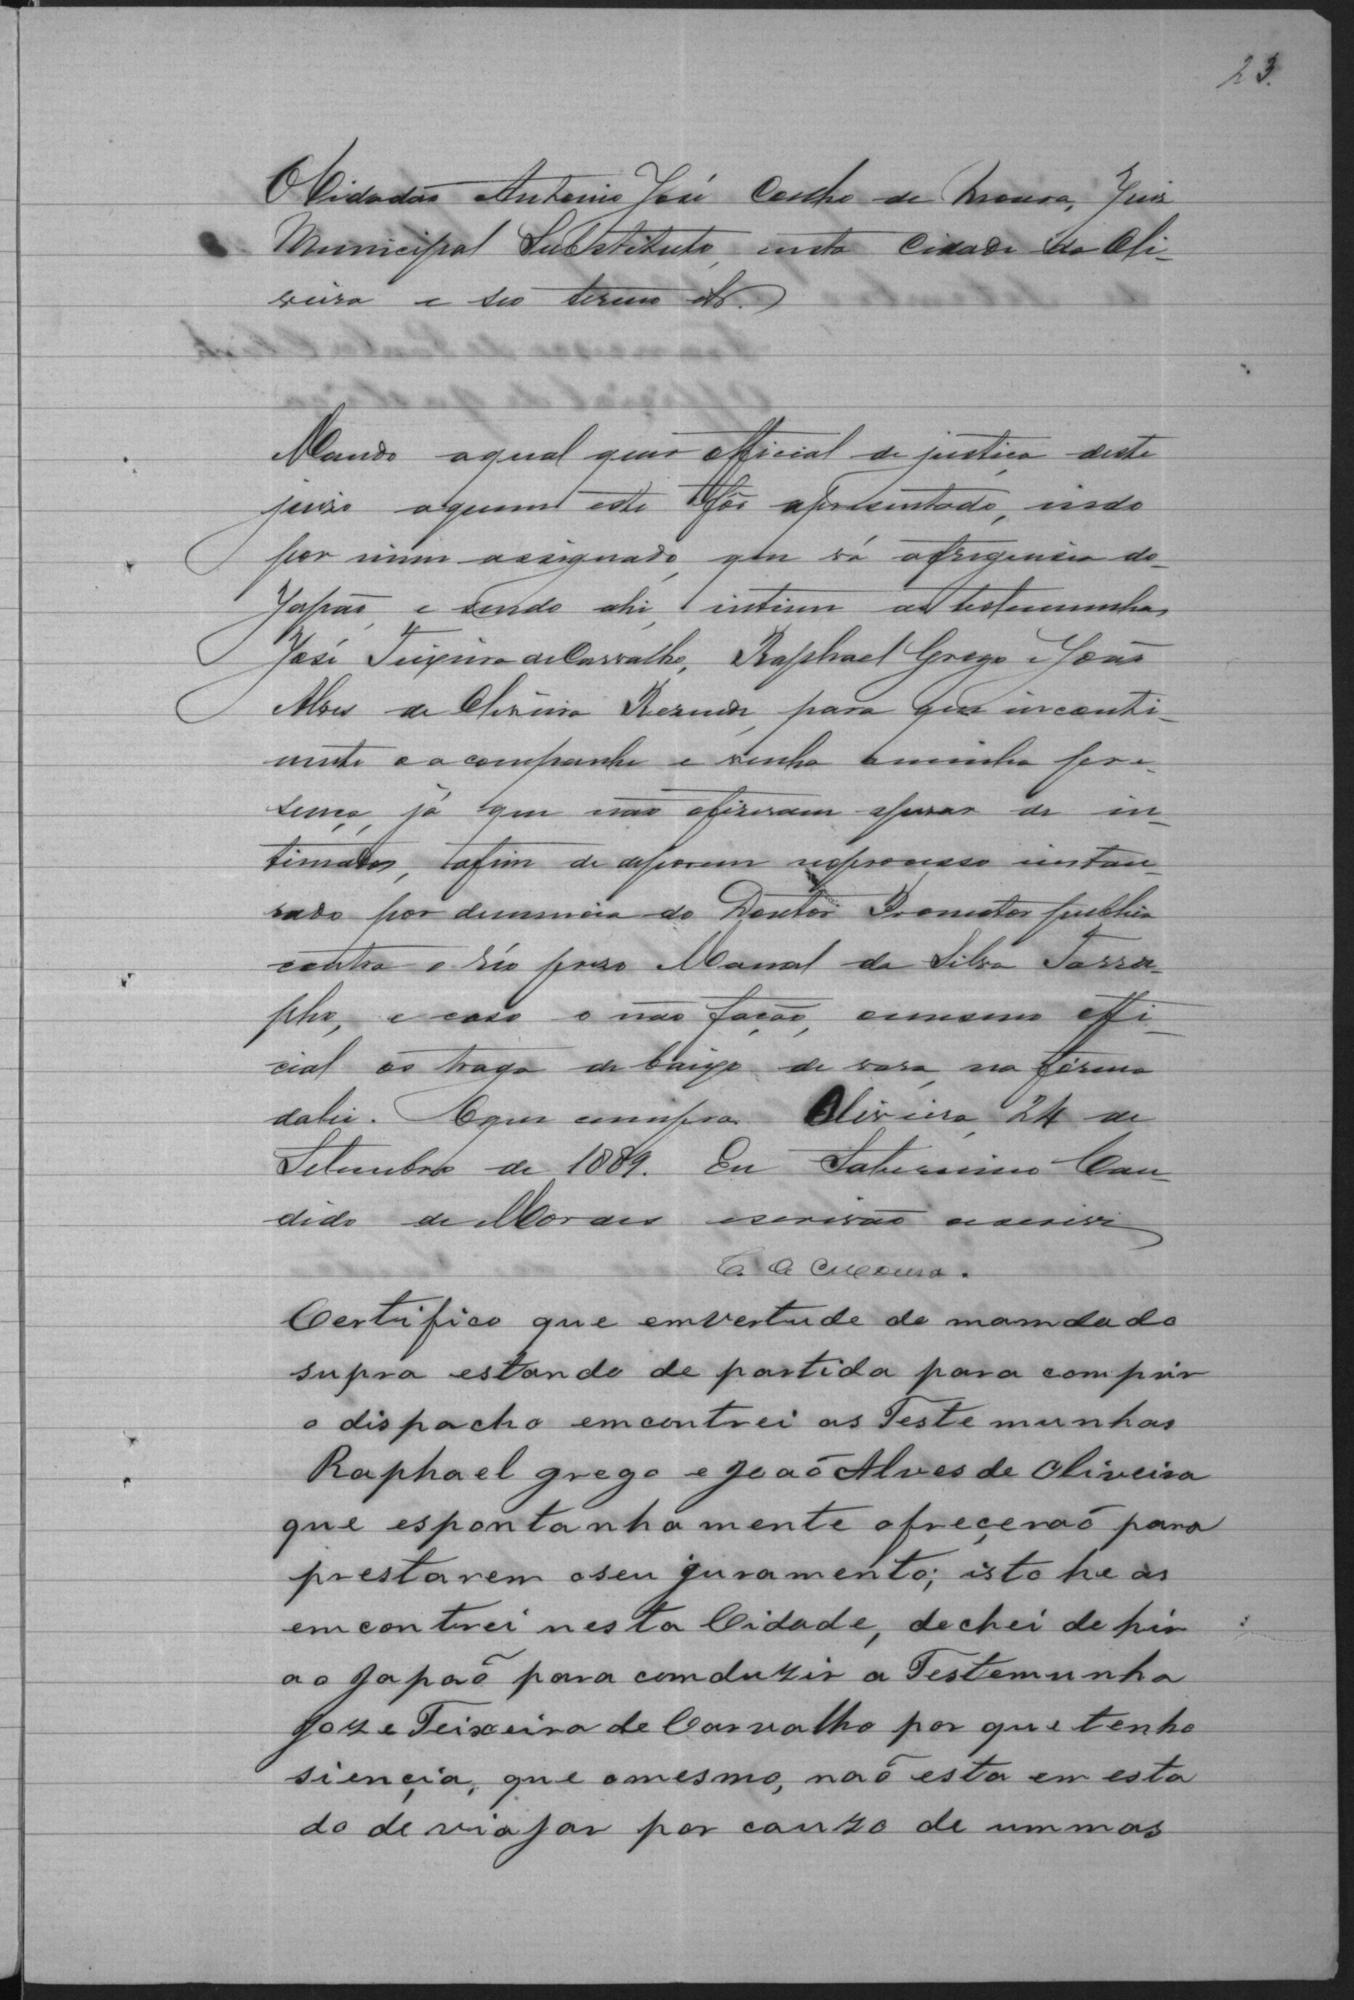 23.
O Cidadão Antonio José Coelho de Moura, Juis
Municipal Substituto, nesta Cidade de Oli-
veira e seo termo etc.
Mando aqual quer official de justiça deste
juizo aquem este fôr apresentado, indo
por mim assignado, que vá afreguesia do
Japão, e sendo ahi, intime as testemunhas
José Teixeira de Carvalho, Raphael Grego e João
Alves de Oliveira Rezende, para que inconti-
nente o acompanhe e venha aminha pre-
sença, já que não ofizeram apezar de in-
timados, afim de deporem noprocesso instau-
rado por denuncia do Doutor Promotor publico
contra o réo prezo Manoel da Silva
e caso o não fação, omesmo offi-
cial os traga de baixo de vara, na fórma
dalei. Oque cumpra. Oliveira, 24 de
Setembro de 1889. Eu Saturnino Can-
dido de Moraes escrivão oescrevi
Moura.
Certifico que emvertude do mamdado
supra estando de partida para comprir
o dispacho emcontrei as Testemunhas
Raphael grego e Joaõ Alves de Oliveira
que espontanhamente ofreçeraõ para
prestarem oseu juramento; isto he as
emcontrei nesta Cidade, dechei de hir
ao Japaõ para comduzir a Testemunha
Joze Teixeira de Carvalho por que tenho
siençia, que omesmo, naõ esta em esta
do de viajar por cauzo de ummas